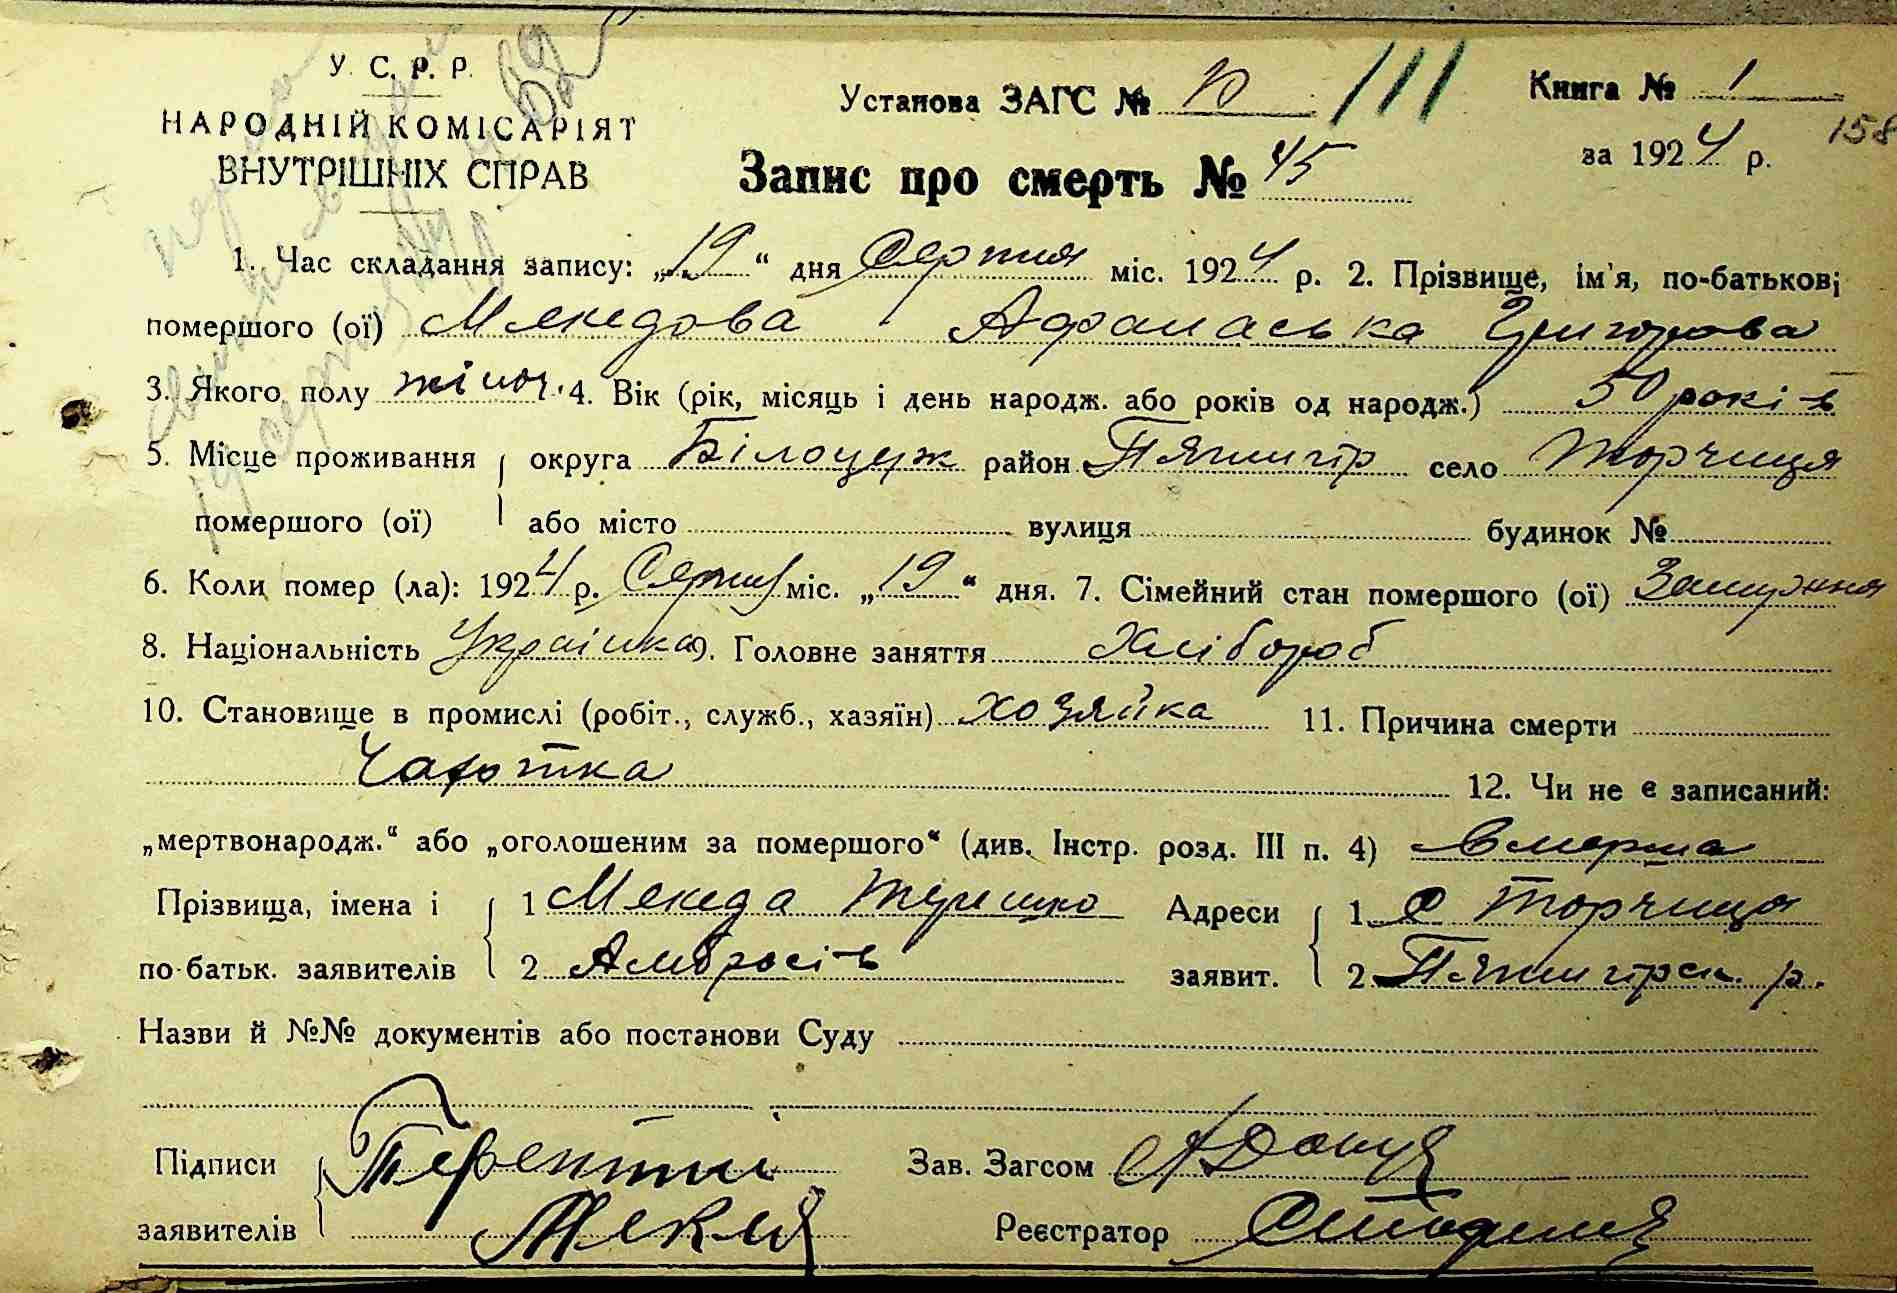 У. С. Р. Р.
НАРОДНІЙ КОМІСАРІЯТ
ВНУТРІШНІХ СПРАВ
Установа ЗАГС № 10
111
Книга № 1
за 1924 р.
158
Запис про смерть № 45
1. Час складання запису: „19“ дня Серпня міс. 1924 р. 2. Прізвище, ім'я, по-батькові
помершого (ої) Мекедова Афанаська Григорова
3. Якого полу жіноч. 4. Вік (рік, місяць і день народж. або років од народж.) 50 років
5. Місце проживання округа Білоцерк район Пятигір село Торчиця
помершого (ої) або місто вулиця будинок №
6. Коли помер (ла): 1924 р. Серпня міс. „19“ дня. 7. Сімейний стан помершого (ої) Замужня
8. Національність Українка 9. Головне заняття Хлібороб
10. Становище в промислі (робіт., служб., хазяїн) хозяйка 11. Причина смерти
Чахотка 12. Чи не є записаний:
„мертвонародж.“ або „оголошеним за помершого“ (див. Інстр. розд. III п. 4) вмерша
Прізвища, імена і 1 Мекеда Терешко Адреси 1. с Торчиця
по-батьк. заявителів 2 Амбросів заявит. 2. Пятигірск. р.
Назви й №№ документів або постанови Суду
Підписи Терентий Зав. Загсом
заявителів Реєстратор